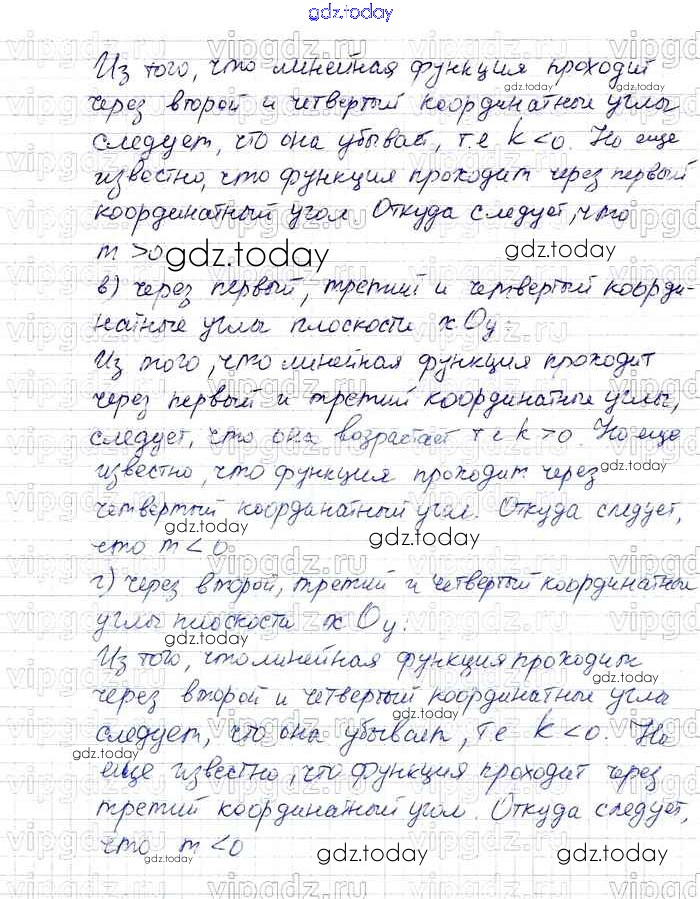 gdz.today
Из того, что линейная функция проходит
через второй и четвертый координатные углы
следует, что она убывает, т.е k<0. Но еще
известно, что функция проходит через первый
координатный угол. Откуда следует, что
m >0 gdz.today gdz.today
в) через первый, третий и четвертый коорди-
натные углы плоскости xOy:
Из того, что линейная функция проходит
через первый и третий координатные углы,
следует, что она возрастает т е k >0. Но еще
gdz.today
известно, что функция проходит через
четвертый координатный угол. Откуда следует,
gdz.today gdz.today
что m < 0
г) через второй, третий и четвертый координатные
углы плоскости xOy:
gdz.today
Из того, что линейная функция проходит
через второй и четвертый координатные углы
gdz.today
следует, что она убывает, т е k <0. Но
gdz.today
еще известно, что функция проходит через
третий координатный угол. Откуда следует,
что m <0
gdz.today gdz.today gdz.today